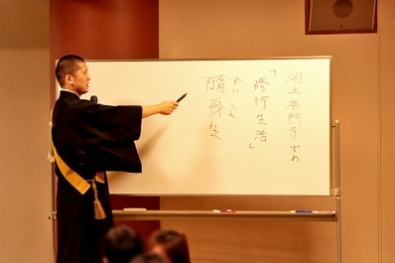 池上本門寺での
「修行生活」
ずいしん
随身生